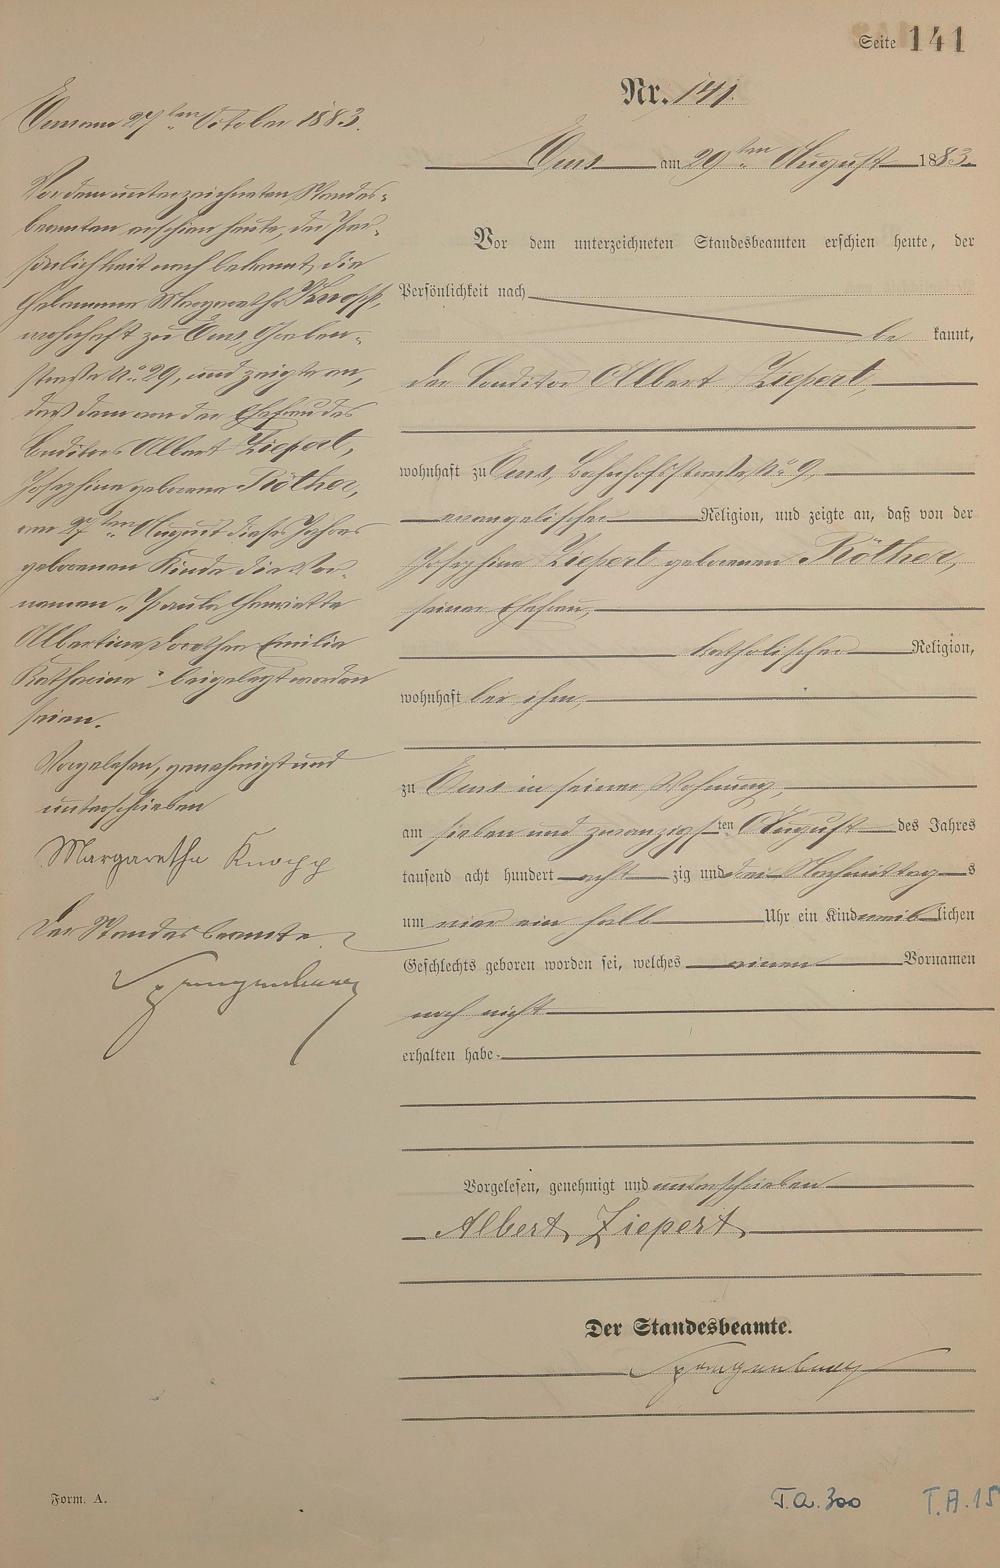 Seite 141
Nr. 141.
Ems am 29ten August 1883.
Vor dem unterzeichneten Standesbeamten erschien heute, der
Persönlichkeit nach
be kannt,
der Conditor Albert Ziepert,
wohnhaft zu Ems, Bahnhofsstraße No. 9,
evangelischer Religion, und zeigte an, daß von der
Josephine Ziepert geborenen Röther,
seiner Ehefrau,
katholischer Religion,
wohnhaft bei ihm,
zu Ems in seiner Wohnung,
am sieben und zwanzigsten August des Jahres
tausend acht hundert acht zig und drei Nachmittags
um vier ein halb Uhr ein Kind weiblichen
Geschlechts geboren worden sei, welches einen Vornamen
noch nicht
erhalten habe.
Vorgelesen, genehmigt und unterschrieben
Albert Ziepert
Der Standesbeamte.
Ems am 27ten October 1883.
Vor dem unterzeichneten Standes-
beamten erschien heute, der Per-
sönlichkeit nach bekannt, die
Hebamme Margaretha Knopp,
wohnhaft zu Ems, Graben-
straße No. 29, und zeigte an,
daß dem von der Ehefrau des
Conditors Albert Ziepert,
Josephine geborene Röther,
am 27ten August dieses Jahres
geborenen Kinde die Vor-
namen „Paula Henriette
Albertine Dorothea Emilie
Katharina" beigelegt worden
seien.
Vorgelesen, genehmigt und
unterschrieben
Margaretha Knopp
Der Standesbeamte.
Form. A.
T.A. 300
T.A. 15